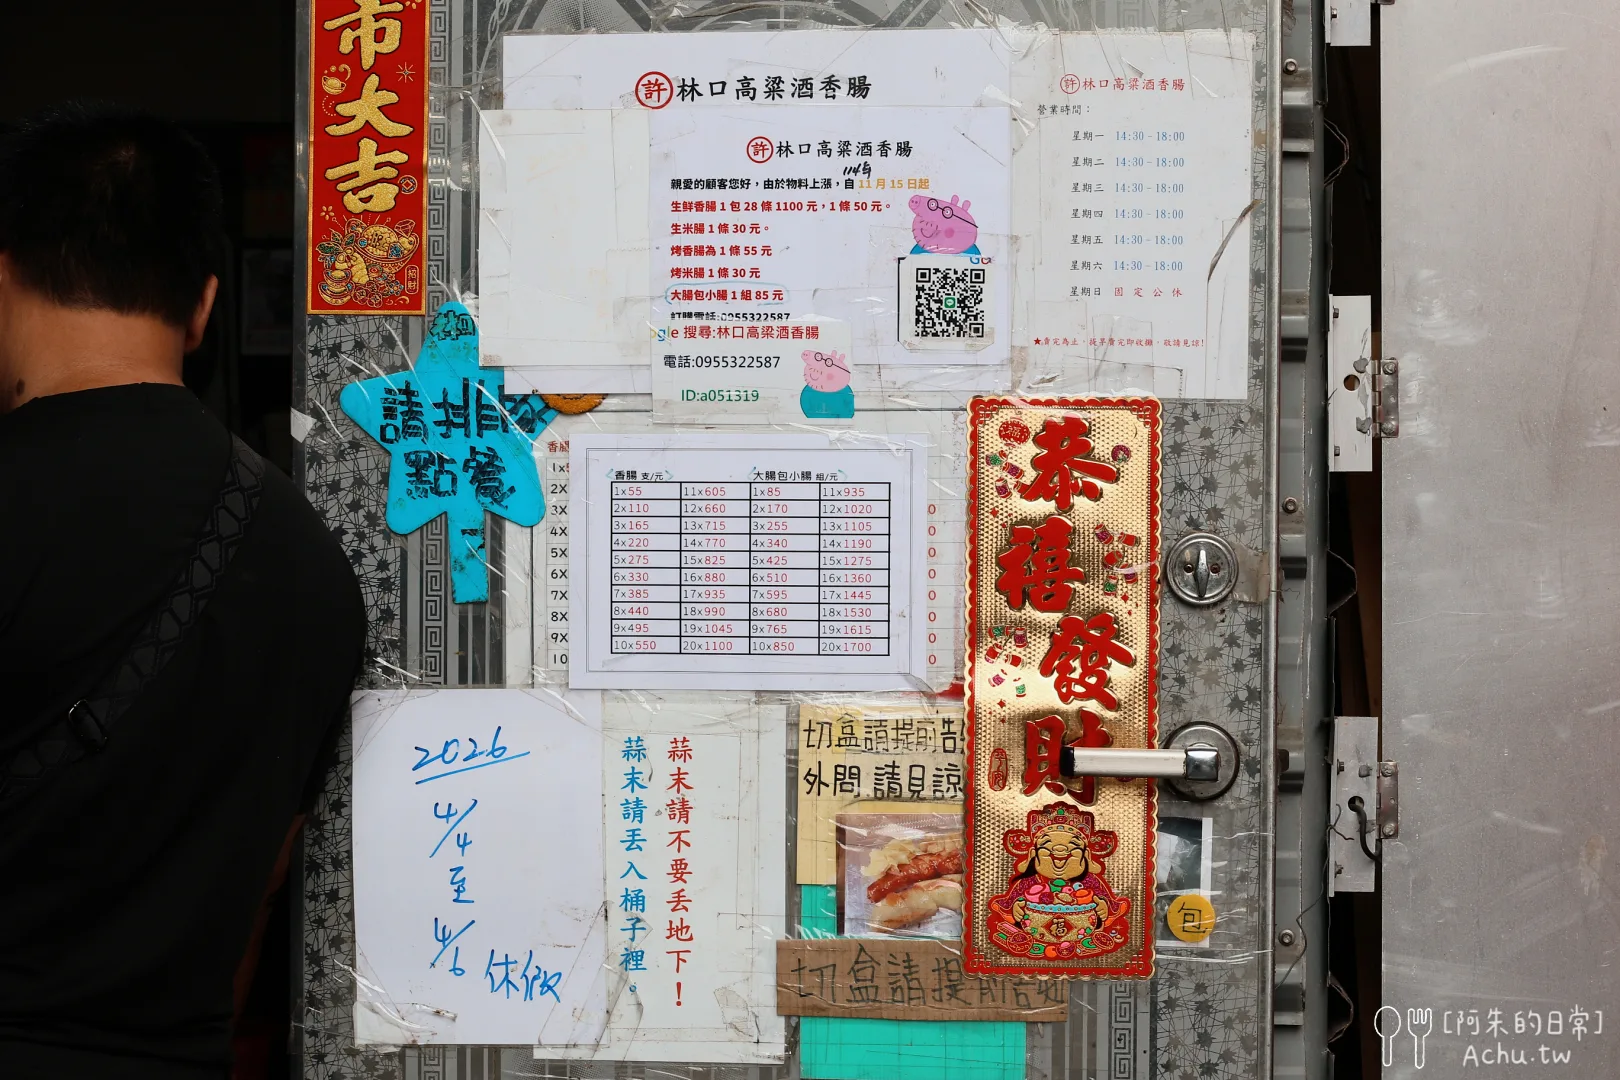 市大吉
招財
許 林口高粱酒香腸
許 林口高粱酒香腸
114年
親愛的顧客您好，由於物料上漲，自 11 月 15 日起
生鮮香腸 1 包 28 條 1100 元，1 條 50 元。
生米腸 1 條 30 元。
烤香腸為 1 條 55 元
烤米腸 1 條 30 元
大腸包小腸 1 組 85 元
訂購電話:0955322587
gle 搜尋:林口高粱酒香腸
電話:0955322587
ID:a051319
許 林口高粱酒香腸
營業時間：
星期一 14:30－18:00
星期二 14:30－18:00
星期三 14:30－18:00
星期四 14:30－18:00
星期五 14:30－18:00
星期六 14:30－18:00
星期日 固定公休
★賣完為止，提早賣完即收攤，敬請見諒!
請排隊
點餐
香腸
1x5
2X
3X
4X
5X
6X
7X
8X
9X
10
香腸 支/元 大腸包小腸 組/元
1x55 11x605 1x85 11x935
2x110 12x660 2x170 12x1020
3x165 13x715 3x255 13x1105
4x220 14x770 4x340 14x1190
5x275 15x825 5x425 15x1275
6x330 16x880 6x510 16x1360
7x385 17x935 7x595 17x1445
8x440 18x990 8x680 18x1530
9x495 19x1045 9x765 19x1615
10x550 20x1100 10x850 20x1700
恭禧發財
福
2026
4/4
至
4/6 休假
蒜末請不要丟地下！
蒜末請丟入桶子裡。
切盒請提前告
外問.請見諒
切盒請提前告知
包
[阿朱的日常]
Achu.tw